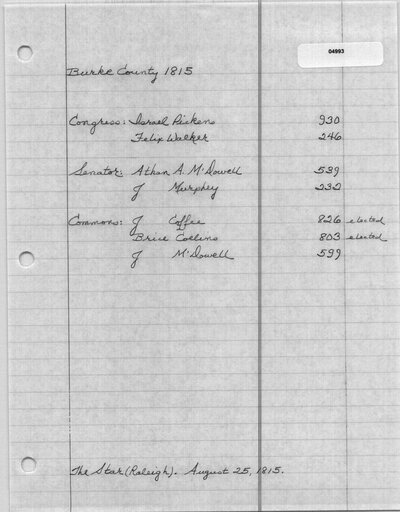 04993
Burke County 1815
Congress: Israel Pickens 930
Felix Walker 246
Senator: Athan A. McDowell 539
J Murphy 232
Commons: J Coffee 826 elected
Brice Collins 803 elected
J McDowell 599
The Star (Raleigh). August 25, 1815.